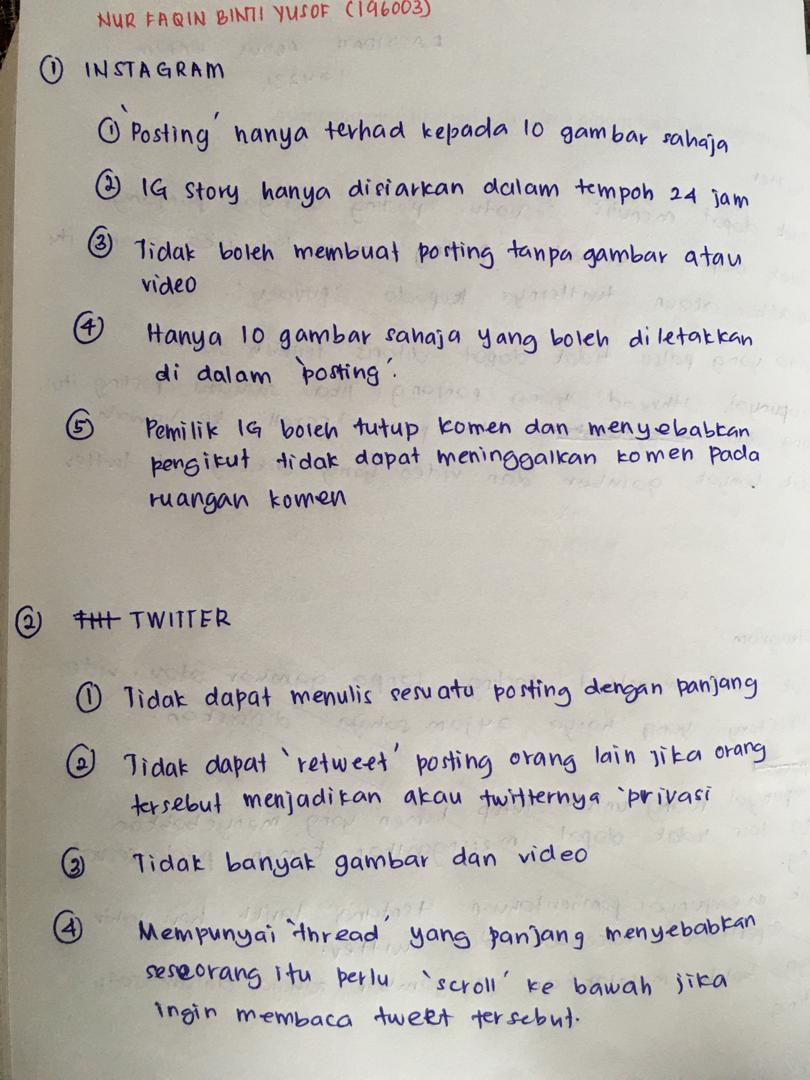 NUR FAQIN BINTI YUSOF (196003)
① INSTAGRAM
① 'Posting' hanya terhad kepada 10 gambar sahaja
② IG Story hanya disiarkan dalam tempoh 24 jam
③ Tidak boleh membuat posting tanpa gambar atau
video
④ Hanya 10 gambar sahaja yang boleh diletakkan
di dalam 'posting'.
⑤ Pemilik IG boleh tutup komen dan menyebabkan
pengikut tidak dapat meninggalkan komen pada
ruangan komen
② TWITTER
① Tidak dapat menulis sesuatu posting dengan panjang
② Tidak dapat 'retweet' posting orang lain jika orang
tersebut menjadikan akau twitternya 'privasi
③ Tidak banyak gambar dan video
④ Mempunyai 'thread' yang panjang menyebabkan
seseorang itu perlu 'scroll' ke bawah jika
ingin membaca tweet tersebut.